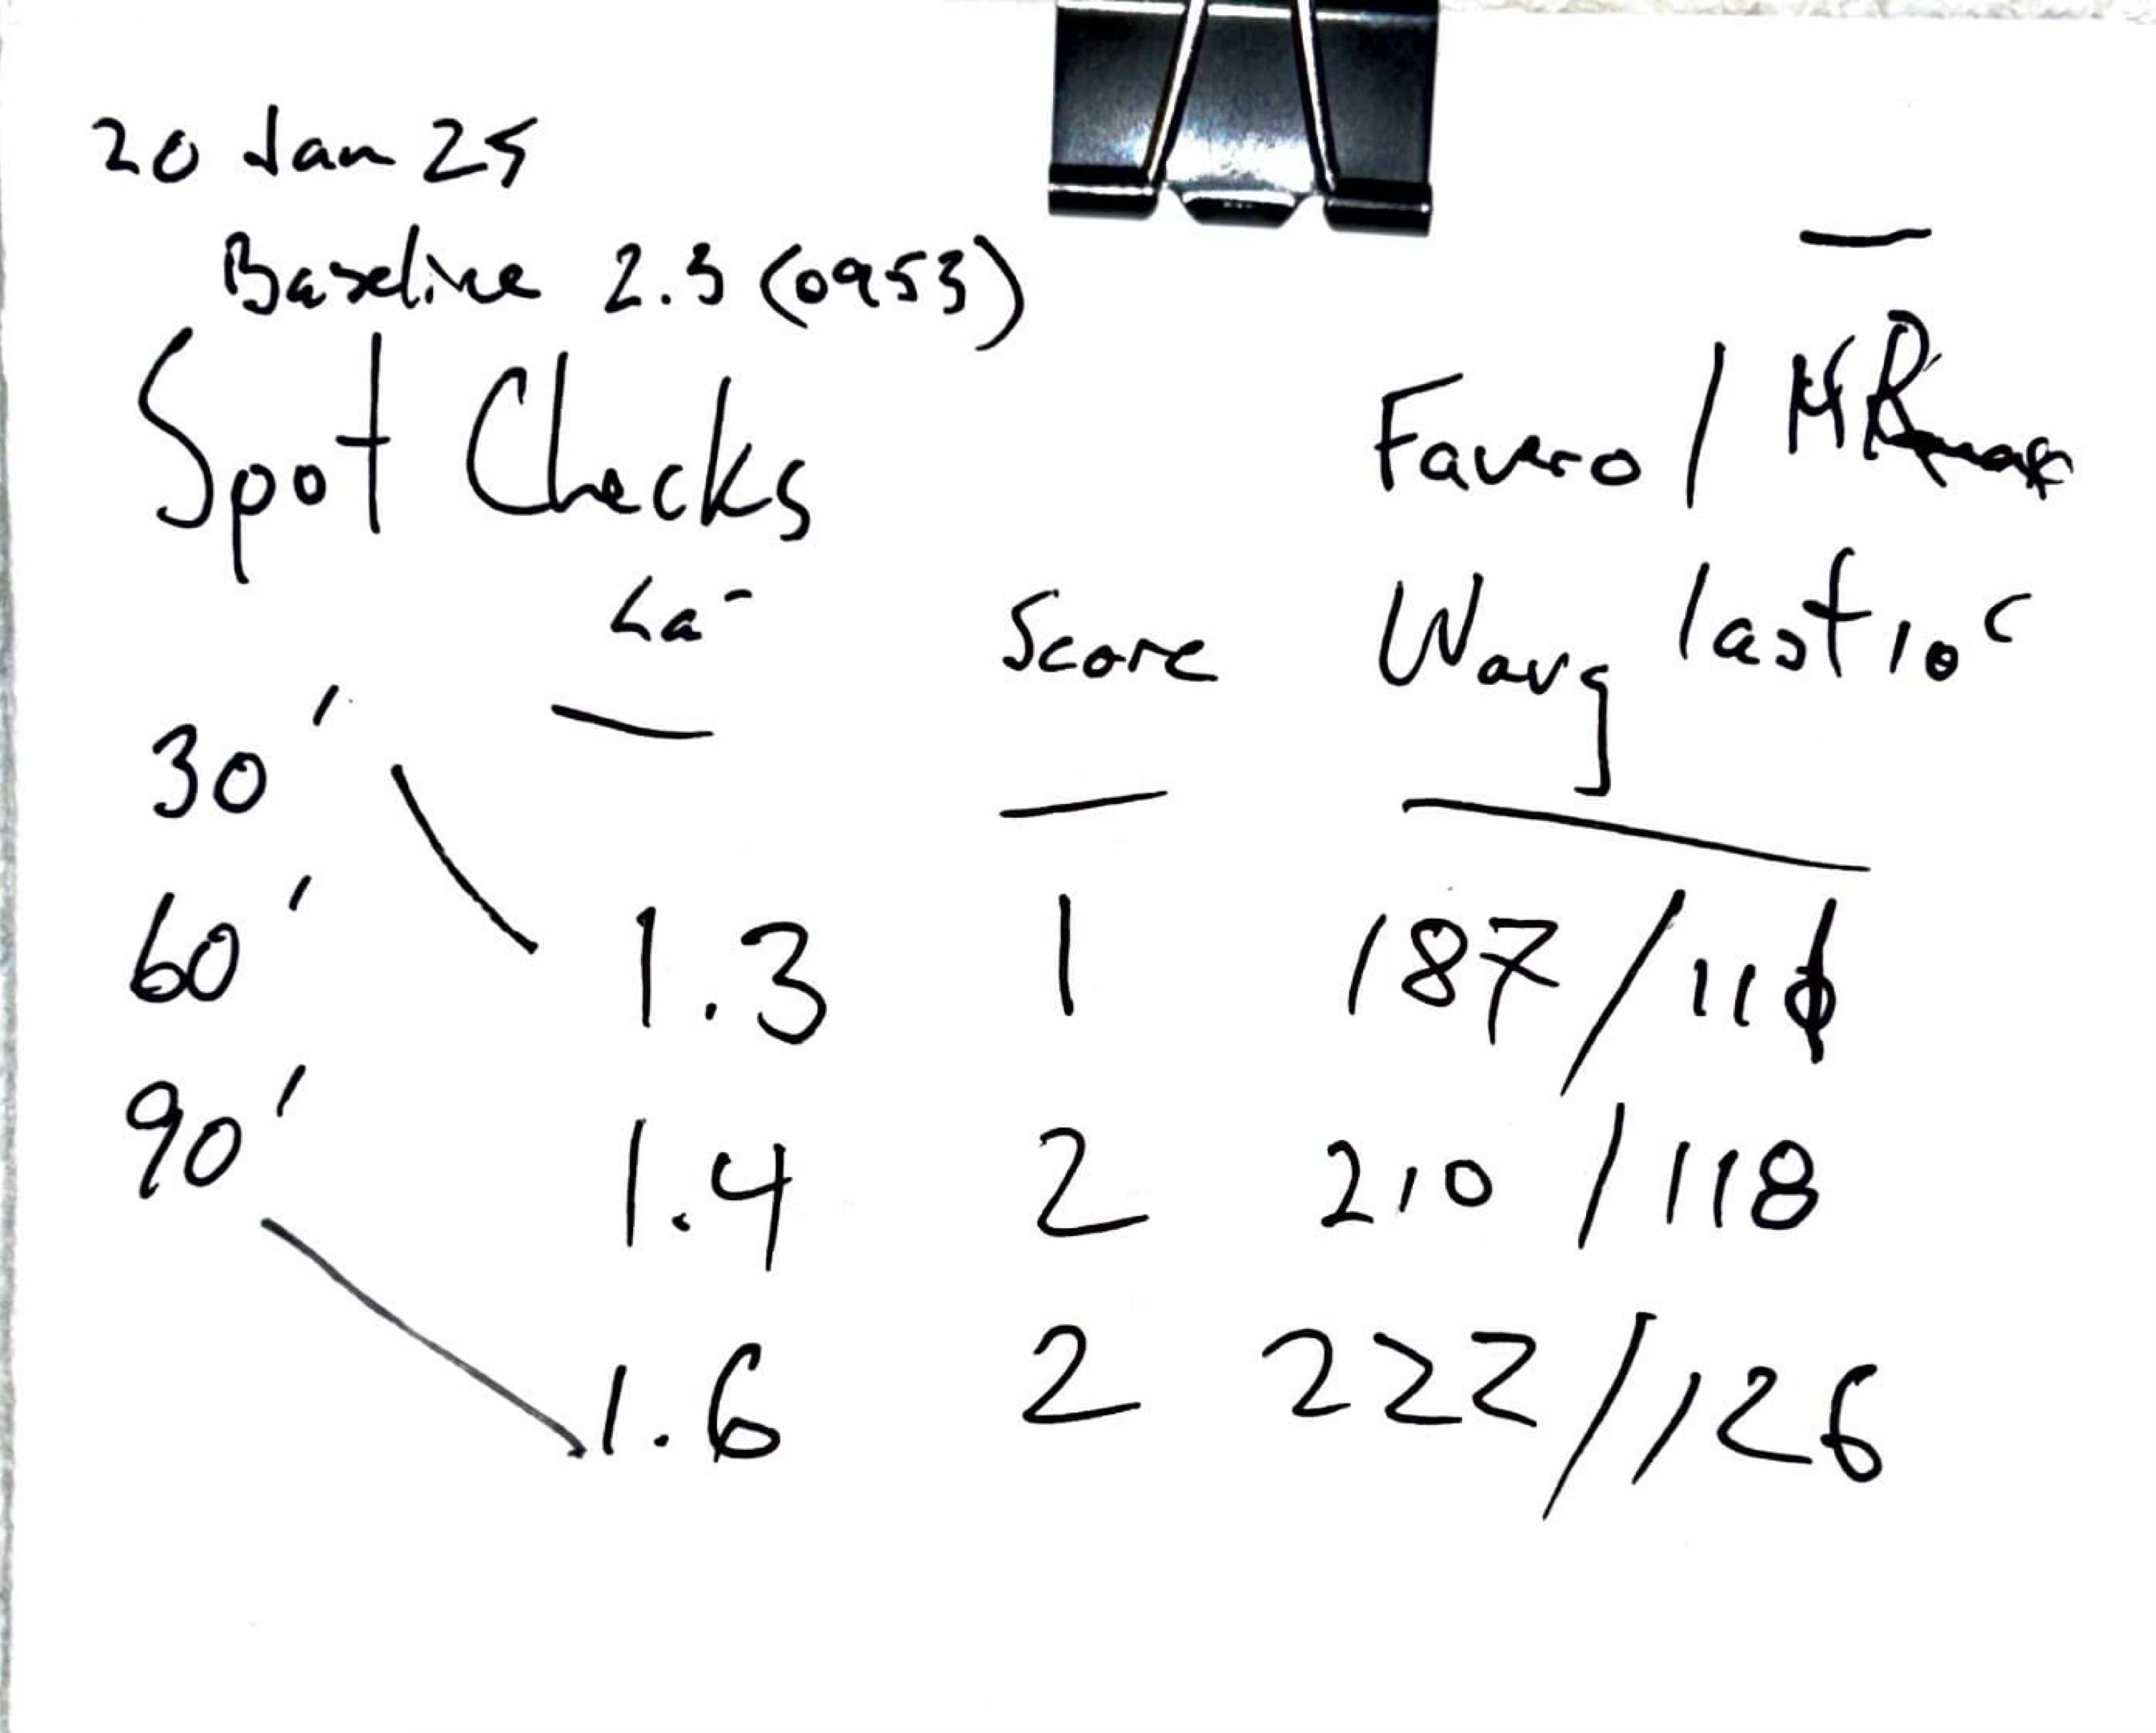 20 Jan 25
Baseline 2.3 (0953)
Spot Checks Favero / HRmax
La- Score Wavg last 10c
30'
60' 1.3 1 187/110
90' 1.4 2 210/118
1.6 2 222/126